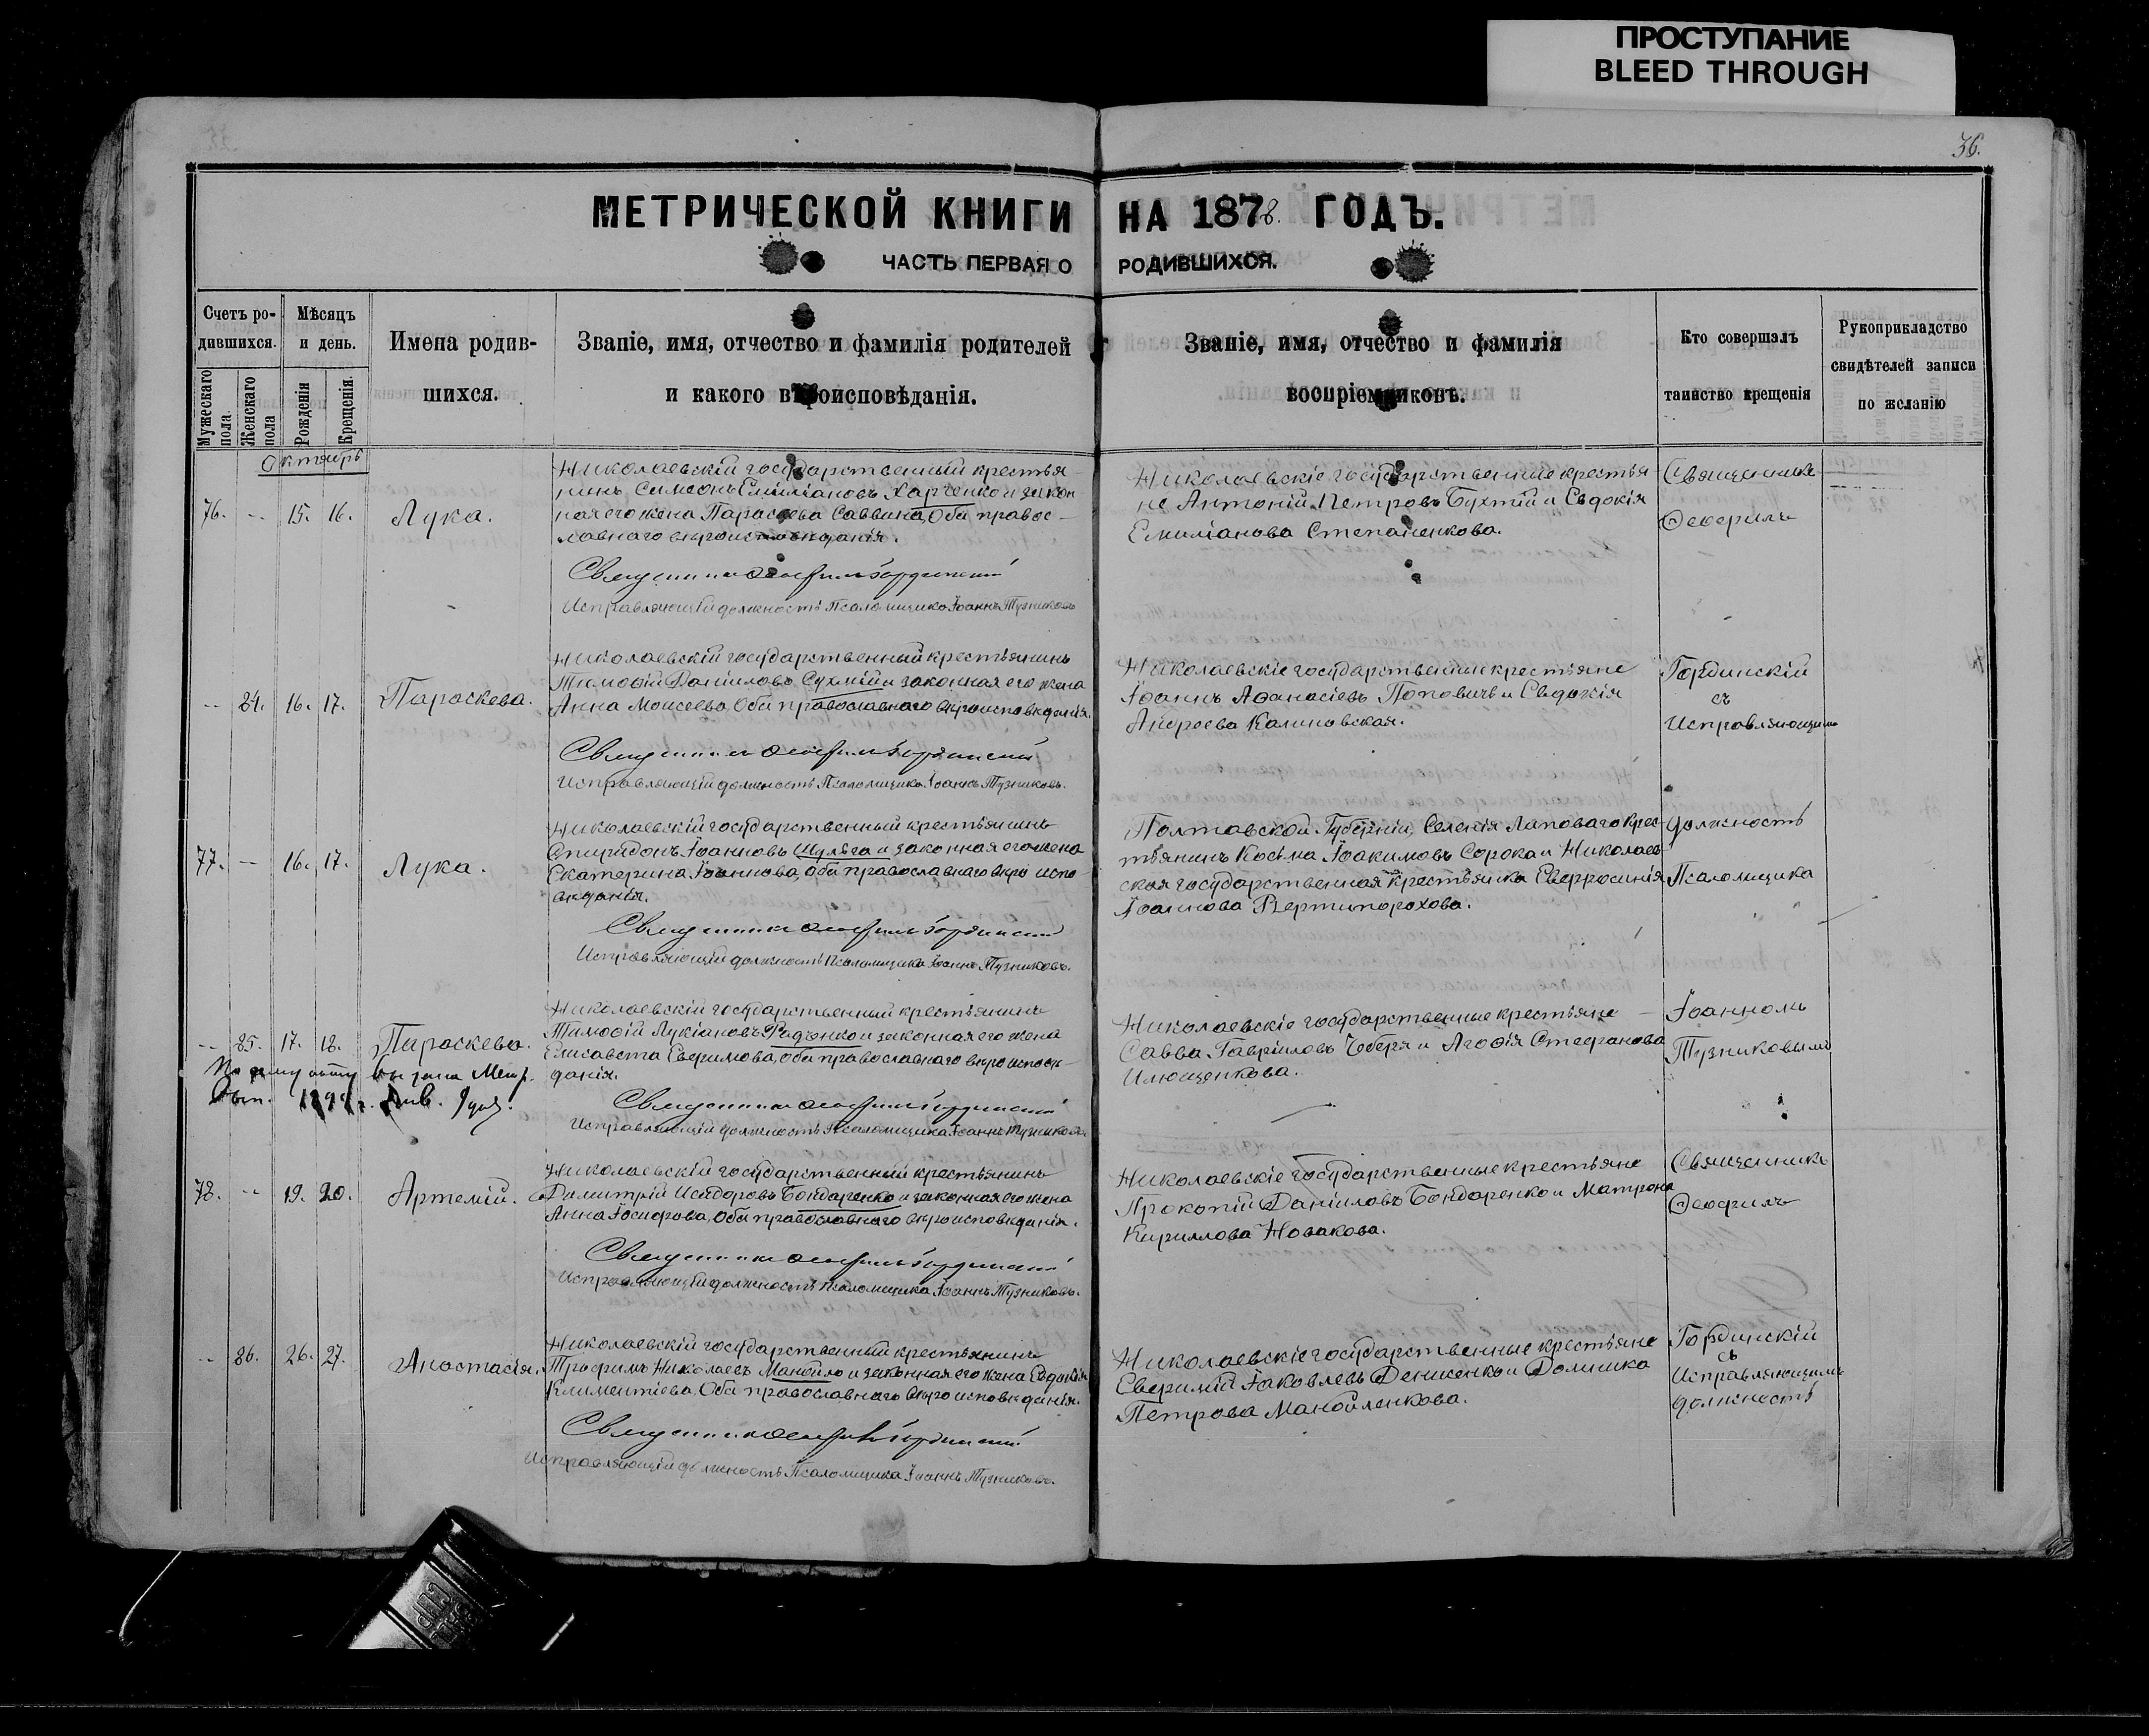 ПРОСТУПАНИЕ
BLEED THROUGH
36.
МЕТРИЧЕСКОЙ КНИГИ НА 1878. ГОДЪ.
ЧАСТЬ ПЕРВАЯ О РОДИВШИХСЯ.
Счетъ родившихся.
Мужескаго пола.
Женскаго пола
Мѣсяцъ и день.
Рожденія
Крещенія.
Имена родившихся.
Званіе, имя, отчество и фамилія родителей
и какого вѣроисповѣданія.
Званіе, имя, отчество и фамилія
воспріемниковъ.
Кто совершалъ
таинство крещенія
Рукоприкладство
свидѣтелей записи
по желанію
Октябрь
76. -- 15. 16. Лука.
Николаевскій государственный крестья-
нинъ Симеонъ Емиліановъ Харченко и закон
ная его жена Параскева Саввина, Оба правос-
лавнаго вѣроисповѣданія.
Священникъ Ѳеофилъ Гординскій
Исправляющій должность Псаломщика Іоаннъ Тузниковъ
Николаевскіе государственные крестья-
не Антоній Петровъ Бухтій и Евдокія
Емиліанова Степаненкова.
Священникъ
Ѳеофилъ
-- 84. 16. 17. Параскева.
Николаевскій государственный крестьянинъ
Тимоѳій Даніиловъ Сухмій и законная его жена
Анна Моисеева, Оба православнаго вѣроисповѣданія.
Священникъ Ѳеофилъ Гординскій
Исправляющій должность Псаломщика Іоаннъ Тузниковъ.
Николаевскіе государственные крестьяне
Іоаннъ Аѳанасіевъ Поповичъ и Евдокія
Андреева Калиновская.
Гординскій
съ
Исправляющимъ
77. -- 16. 17. Лука.
Николаевскій государственный крестьянинъ
Спиридонъ Іоанновъ Шульга и законная его жена
Екатерина Іоаннова, Оба православнаго вѣро испо-
вѣданія.
Священникъ Ѳеофилъ Гординскій
Исправляющій должность Псаломщика Іоаннъ Тузниковъ.
Полтавской Губерніи, Селенія Лаповаго крес-
тьянинъ Косьма Іоакимовъ Сорока и Николаев-
ская государственная крестьянка Евфросинія
Іоаннова Вертипорохова.
должность
Псаломщика
-- 85. 17. 18. Параскева.
Николаевскій государственный крестьянинъ
Тимоѳій Лукіановъ Радченко и законная его жена
Елисавета Евфимова, Оба православнаго вѣроисповѣ-
данія.
Священникъ Ѳеофилъ Гординскій
Исправляющій должность Псаломщика Іоаннъ Тузниковъ
Николаевскіе государственные крестьяне
Савва Гавріиловъ Чеберя и Агафія Стефанова
Илющенкова.
Іоанномъ
Тузниковымъ
78. -- 19. 20. Артемій.
Николаевскій государственный крестьянинъ
Димитрій Исидоровъ Бондаренко и законная его жена
Анна Іосифова, Оба православнаго вѣроисповѣданія.
Священникъ Ѳеофилъ Гординскій
Исправляющій должность Псаломщика Іоаннъ Тузниковъ.
Николаевскіе государственные крестьяне
Прокопій Даніиловъ Бондаренко и Матрона
Кириллова Новакова.
Священникъ
Ѳеофилъ
-- 86. 26. 27. Анастасія.
Николаевскій государственный крестьянинъ
Трофимъ Николаевъ Манойло и законная его жена Евдокія
Климентіева, Оба православнаго вѣроисповѣданія.
Священникъ Ѳеофилъ Гординскій
Исправляющій должность Псаломщика Іоаннъ Тузниковъ.
Николаевскіе государственные крестьяне
Евфимій Іаковлевъ Денисенко и Домника
Петрова Манойленкова.
Гординскій
съ
Исправляющимъ
должность